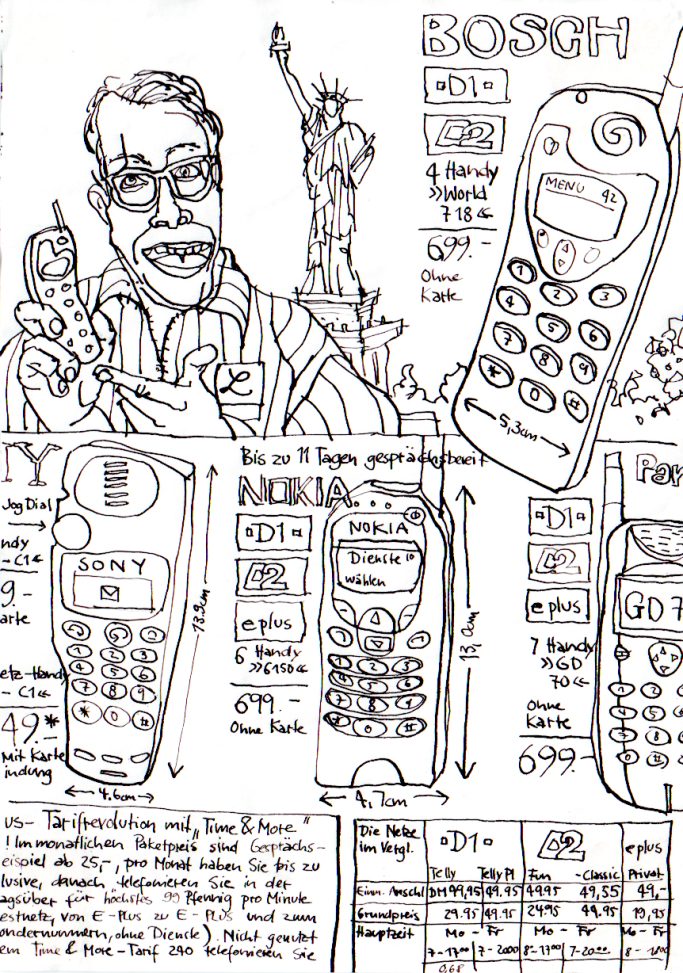 BOSCH
D1
D2
4 Handy
»World
718«
699.-
Ohne
Karte
MENU 42
1 2 3
4 5 6
7 8 9
* 0 #
5,3cm
L
NY
Jog Dial
ndy
- C1«
9.-
arte
etz-Handy
- C1«
49.-*
Mit Karte
indung
SONY
1 2 3
4 5 6
7 8 9
* 0 #
13.9cm
4.6cm
Bis zu 11 Tagen gesprächsbereit
NOKIA
D1
D2
eplus
6 Handy
»6150«
699.-
Ohne Karte
NOKIA
Dienste 10
wählen
1 2 3
4 5 6
7 8 9
* 0 #
13,0cm
4,7cm
Pan
D1
D2
eplus
7 Handy
»GD
70«
Ohne
Karte
699.-
GD7
1 2 3
4 5
7 8
* 0
us- Tarifrevolution mit „Time & More"
! Im monatlichen Paketpreis sind Gesprächs-
eispiel ab 25,-, pro Monat haben Sie bis zu
lusive, danach telefonieren Sie in der
agsüber für höchstes 99 Pfennig pro Minute
estnetz, von E-Plus zu E-Plus und zum
ondernummern, ohne Dienste). Nicht genutzt
em Time & More-Tarif 240 telefonieren Sie
Die Netze im Vergl. D1 D2 eplus
Telly Telly Pl Fun -Classic Privat
Einm. Anschl DM 49,95 49.95 49.95 49,55 49,-
Grundpreis 29.95 49.95 24.95 49.95 19,95
Hauptzeit Mo - Fr Mo - Fr Mo - Fr
7-1700 7-2000 8-1700 7-20.00 8-1800
0,68